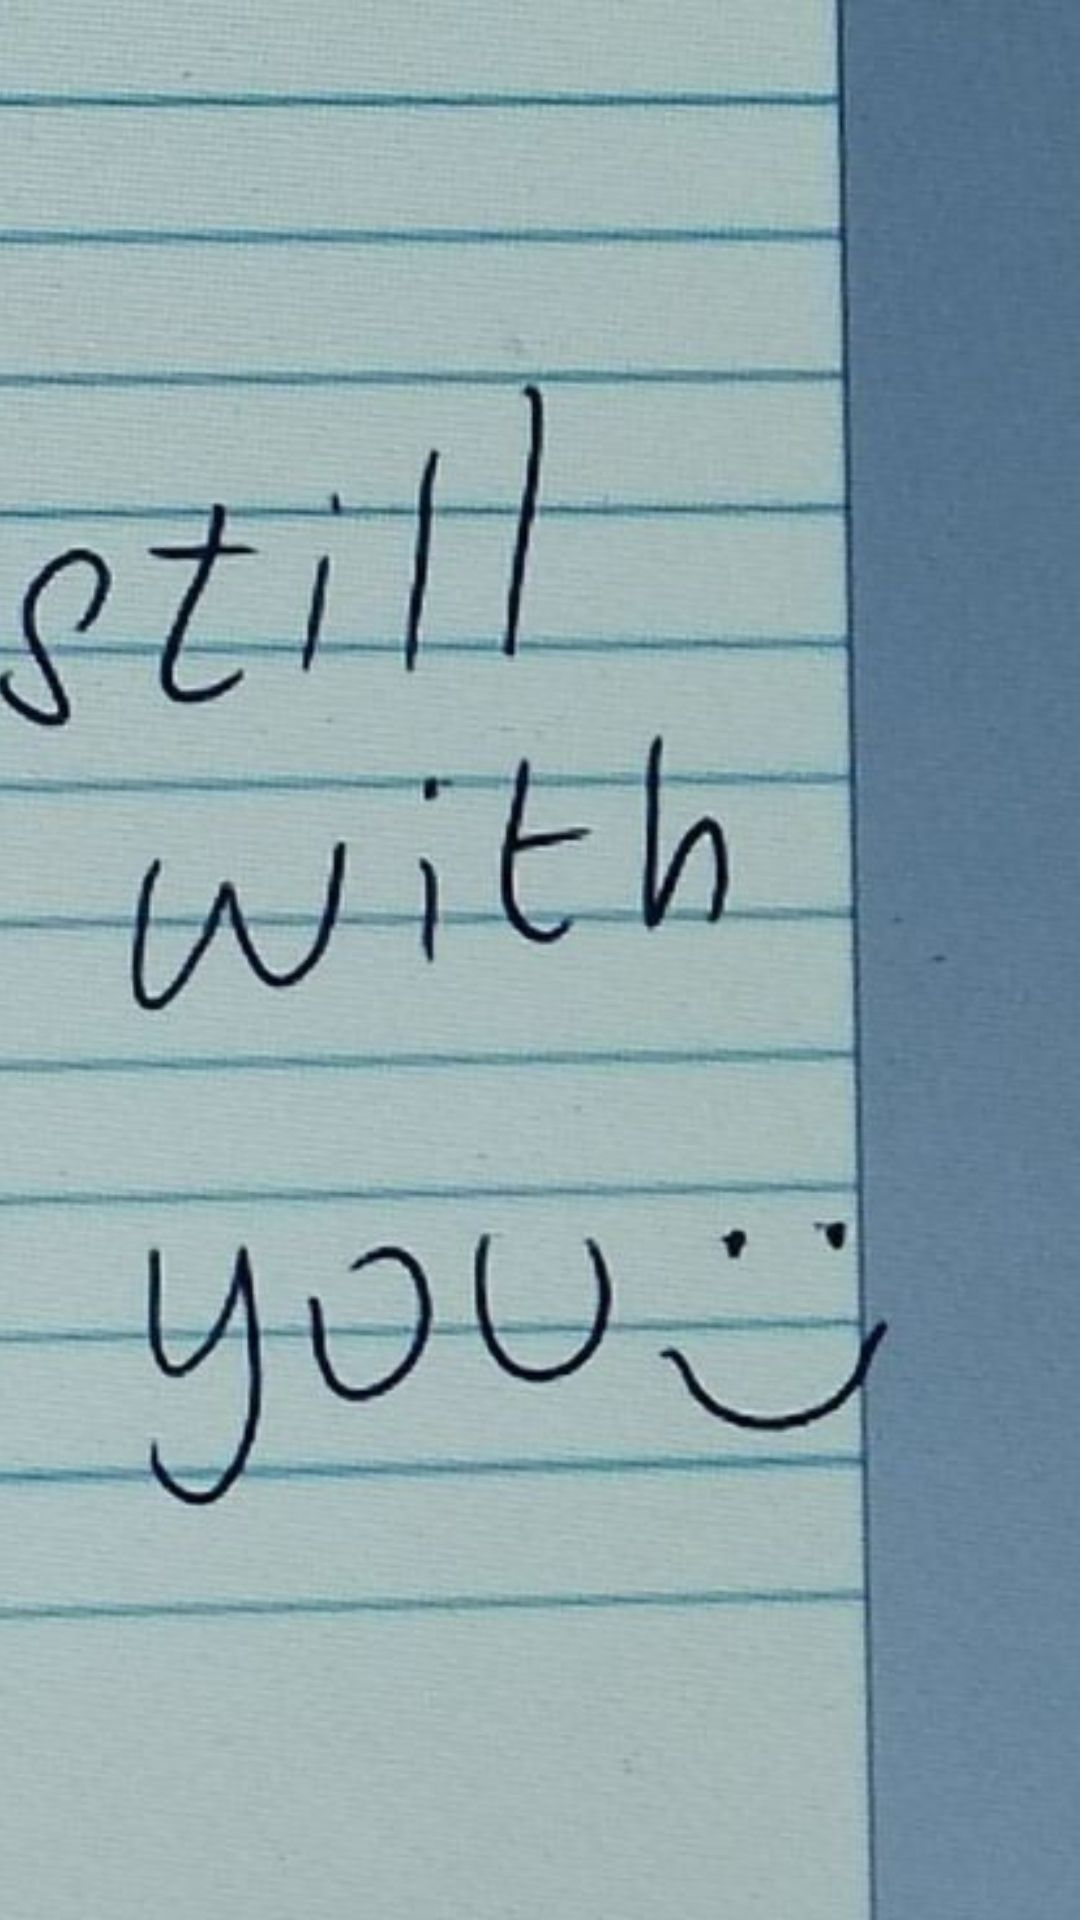 still
with
you